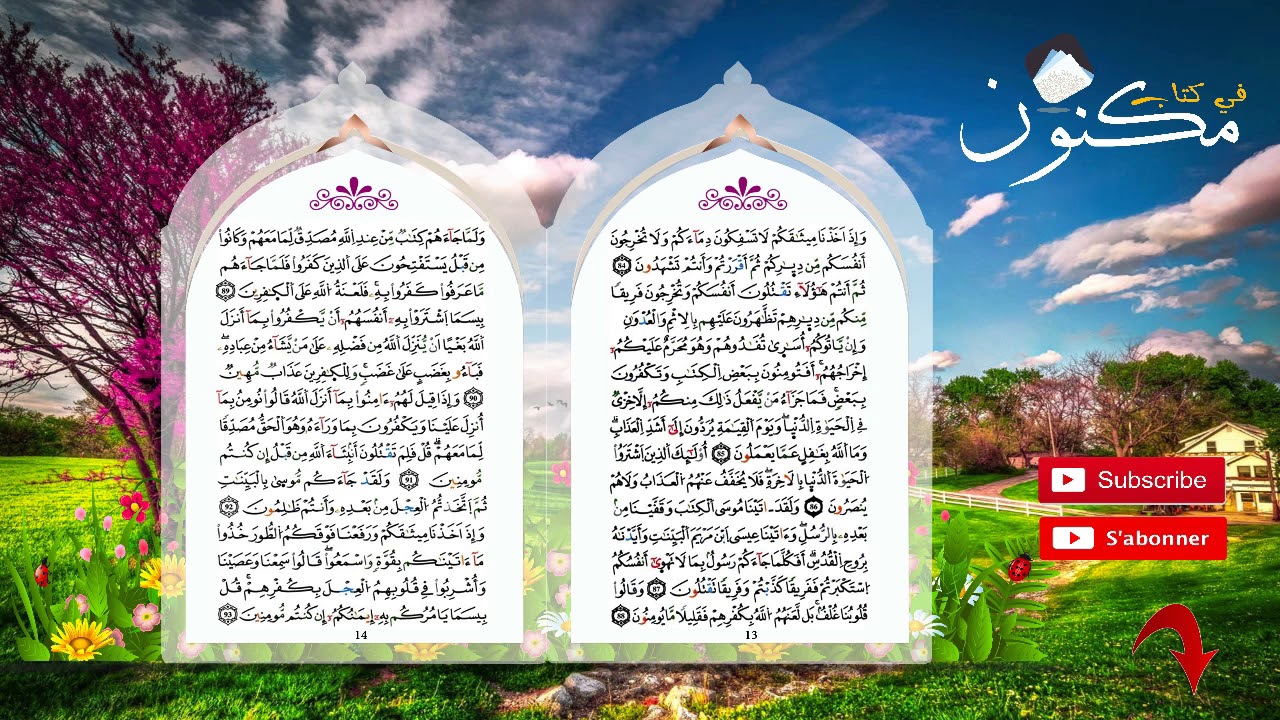 في كتاب
مكنون
وَإِذَ اَخَذْنَا مِيثَٰقَكُمْ لَا تَسْفِكُونَ دِمَآءَكُمْ وَلَا تُخْرِجُونَ
أَنفُسَكُم مِّن دِيٰ۪رِكُمْ ثُمَّ أَقْرَرْتُمْ وَأَنتُمْ تَشْهَدُونَ 84
ثُمَّ أَنتُمْ هَٰٓؤُلَآءِ تَقْتُلُونَ أَنفُسَكُمْ وَتُخْرِجُونَ فَرِيقاٗ
مِّنكُم مِّن دِيٰ۪رِهِمْ تَظَّٰهَرُونَ عَلَيْهِم بِالِاثْمِ وَالْعُدْوَٰنِ
وَإِنْ يَّاتُوكُمُۥٓ أُسَٰر۪ىٰ تُفَٰدُوهُمْ وَهُوَ مُحَرَّمٌ عَلَيْكُمُۥٓ
إِخْرَاجُهُمُۥٓ أَفَتُومِنُونَ بِبَعْضِ اِلْكِتَٰبِ وَتَكْفُرُونَ
بِبَعْضٖ فَمَا جَزَآءُ مَنْ يَّفْعَلُ ذَٰلِكَ مِنكُمُۥٓ إِلَّا خِزْيٞ
فِے اِلْحَيَوٰةِ اِلدُّنْي۪ا وَيَوْمَ اَلْقِيَٰمَةِ يُرَدُّونَ إِلَىٰٓ أَشَدِّ اِلْعَذَابِۖ
وَمَا اَللَّهُ بِغَٰفِلٍ عَمَّا يَعْمَلُونَ 85 أُوْلَٰٓئِكَ اَلذِينَ اَشْتَرَوُاْ
اُلْحَيَوٰةَ اَلدُّنْي۪ا بِالَاخِرَةِ فَلَا يُخَفَّفُ عَنْهُمُ اُلْعَذَابُ وَلَا هُمْ
يُنصَرُونَ 86 وَلَقَدَ اٰتَيْنَا مُوسَى اَلْكِتَٰبَ وَقَفَّيْنَا مِنۢ
بَعْدِهِۦ بِالرُّسُلِۖ وَءَاتَيْنَا عِيسَى اَبْنَ مَرْيَمَ اَلْبَيِّنَٰتِ وَأَيَّدْنَٰهُ
بِرُوحِ اِلْقُدُسِۖ أَفَكُلَّمَا جَآءَكُمْ رَسُولُۢ بِمَا لَا تَهْو۪ىٰٓ أَنفُسُكُمُ
اُسْتَكْبَرْتُمْ فَفَرِيقاٗ كَذَّبْتُمْ وَفَرِيقاٗ تَقْتُلُونَ 87 وَقَالُواْ
قُلُوبُنَا غُلْفُۢۖ بَل لَّعَنَهُمُ اُللَّهُ بِكُفْرِهِمْ فَقَلِيلاٗ مَّا يُومِنُونَ 88
13
وَلَمَّا جَآءَهُمْ كِتَٰبٞ مِّنْ عِندِ اِللَّهِ مُصَدِّقٞ لِّمَا مَعَهُمْ وَكَانُواْ
مِن قَبْلُ يَسْتَفْتِحُونَ عَلَى اَلذِينَ كَفَرُواْ فَلَمَّا جَآءَهُم
مَّا عَرَفُواْ كَفَرُواْ بِهِۦ فَلَعْنَةُ اُللَّهِ عَلَى اَلْكٰ۪فِرِينَ 89
بِيسَمَا اَشْتَرَوْاْ بِهِۦٓ أَنفُسَهُمُۥٓ أَنْ يَّكْفُرُواْ بِمَآ أَنزَلَ
اَللَّهُ بَغْياً اَنْ يُّنَزِّلَ اَللَّهُ مِن فَضْلِهِۦ عَلَىٰ مَنْ يَّشَآءُ مِنْ عِبَادِهِۦۖ
فَبَآءُو بِغَضَبٍ عَلَىٰ غَضَبٖۖ وَلِلْكٰ۪فِرِينَ عَذَابٞ مُّهِينٞ
90 وَإِذَا قِيلَ لَهُمُۥٓ ءَامِنُواْ بِمَآ أَنزَلَ اَللَّهُ قَالُواْ نُومِنُ بِمَآ
أُنزِلَ عَلَيْنَا وَيَكْفُرُونَ بِمَا وَرَآءَهُۥ وَهُوَ اَلْحَقُّ مُصَدِّقاٗ
لِّمَا مَعَهُمْۖ قُلْ فَلِمَ تَقْتُلُونَ أَنۢبِئَآءَ اَللَّهِ مِن قَبْلُ إِن كُنتُم
مُّومِنِينَ 91 وَلَقَدْ جَآءَكُم مُّوس۪ىٰ بِالْبَيِّنَٰتِ
ثُمَّ اَتَّخَذتُّمُ اُلْعِجْلَ مِنۢ بَعْدِهِۦ وَأَنتُمْ ظَٰلِمُونَ 92
وَإِذَ اَخَذْنَا مِيثَٰقَكُمْ وَرَفَعْنَا فَوْقَكُمُ اُلطُّورَ خُذُواْ
مَآ ءَاتَيْنَٰكُم بِقُوَّةٖ وَاسْمَعُواْۖ قَالُواْ سَمِعْنَا وَعَصَيْنَا
وَأُشْرِبُواْ فِے قُلُوبِهِمُ اُلْعِجْلَ بِكُفْرِهِمْۖ قُلْ
بِيسَمَا يَامُرُكُم بِهِۦٓ إِيمَٰنُكُمُۥٓ إِن كُنتُم مُّومِنِينَ 93
14
Subscribe
S'abonner